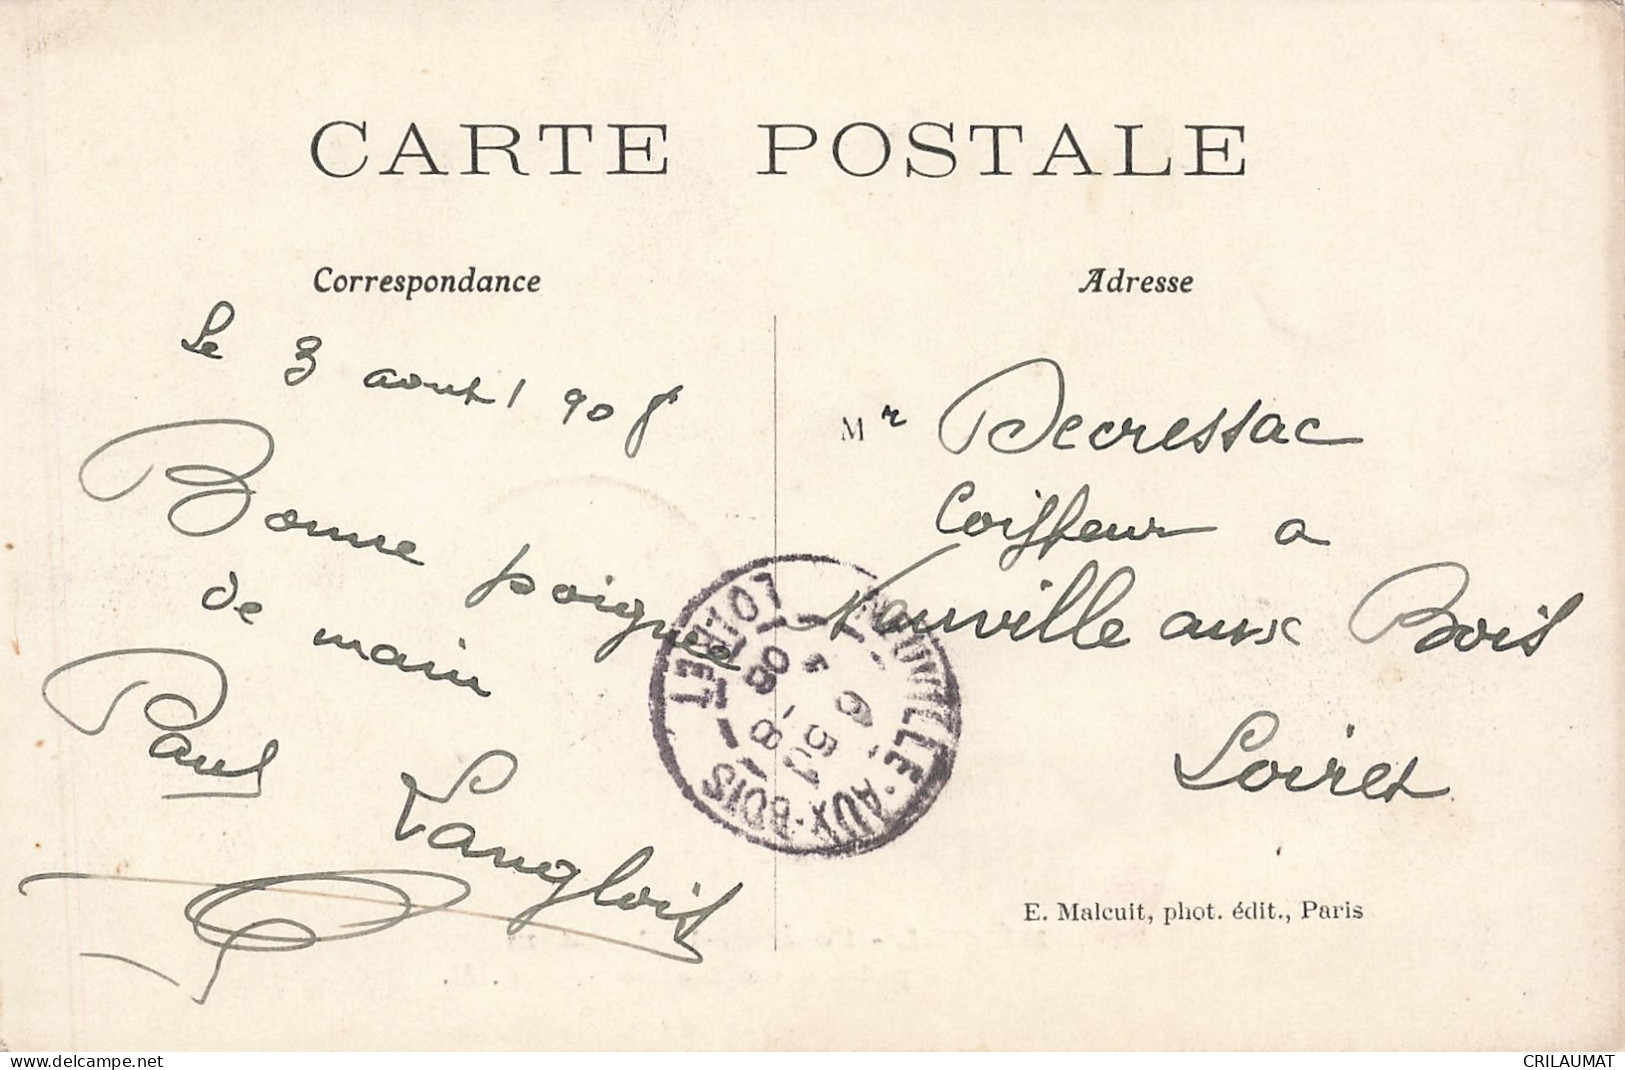 CARTE POSTALE
Correspondance
Le 3 aout 1908
Bonne poignée
de main
Paul Langlois
Adresse
Mr Decressac
Coiffeur a
Neuville aux Bois
Loiret
NEUVILLE-AUX-BOIS
LOIRET
6 50
8 - 8
08
E. Malcuit, phot. édit., Paris
www.delcampe.net
CRILAUMAT